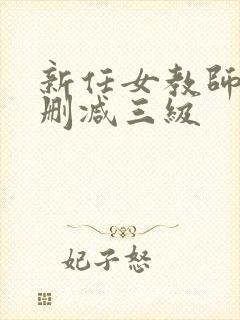 新任女教師
删减三級
妃子怒